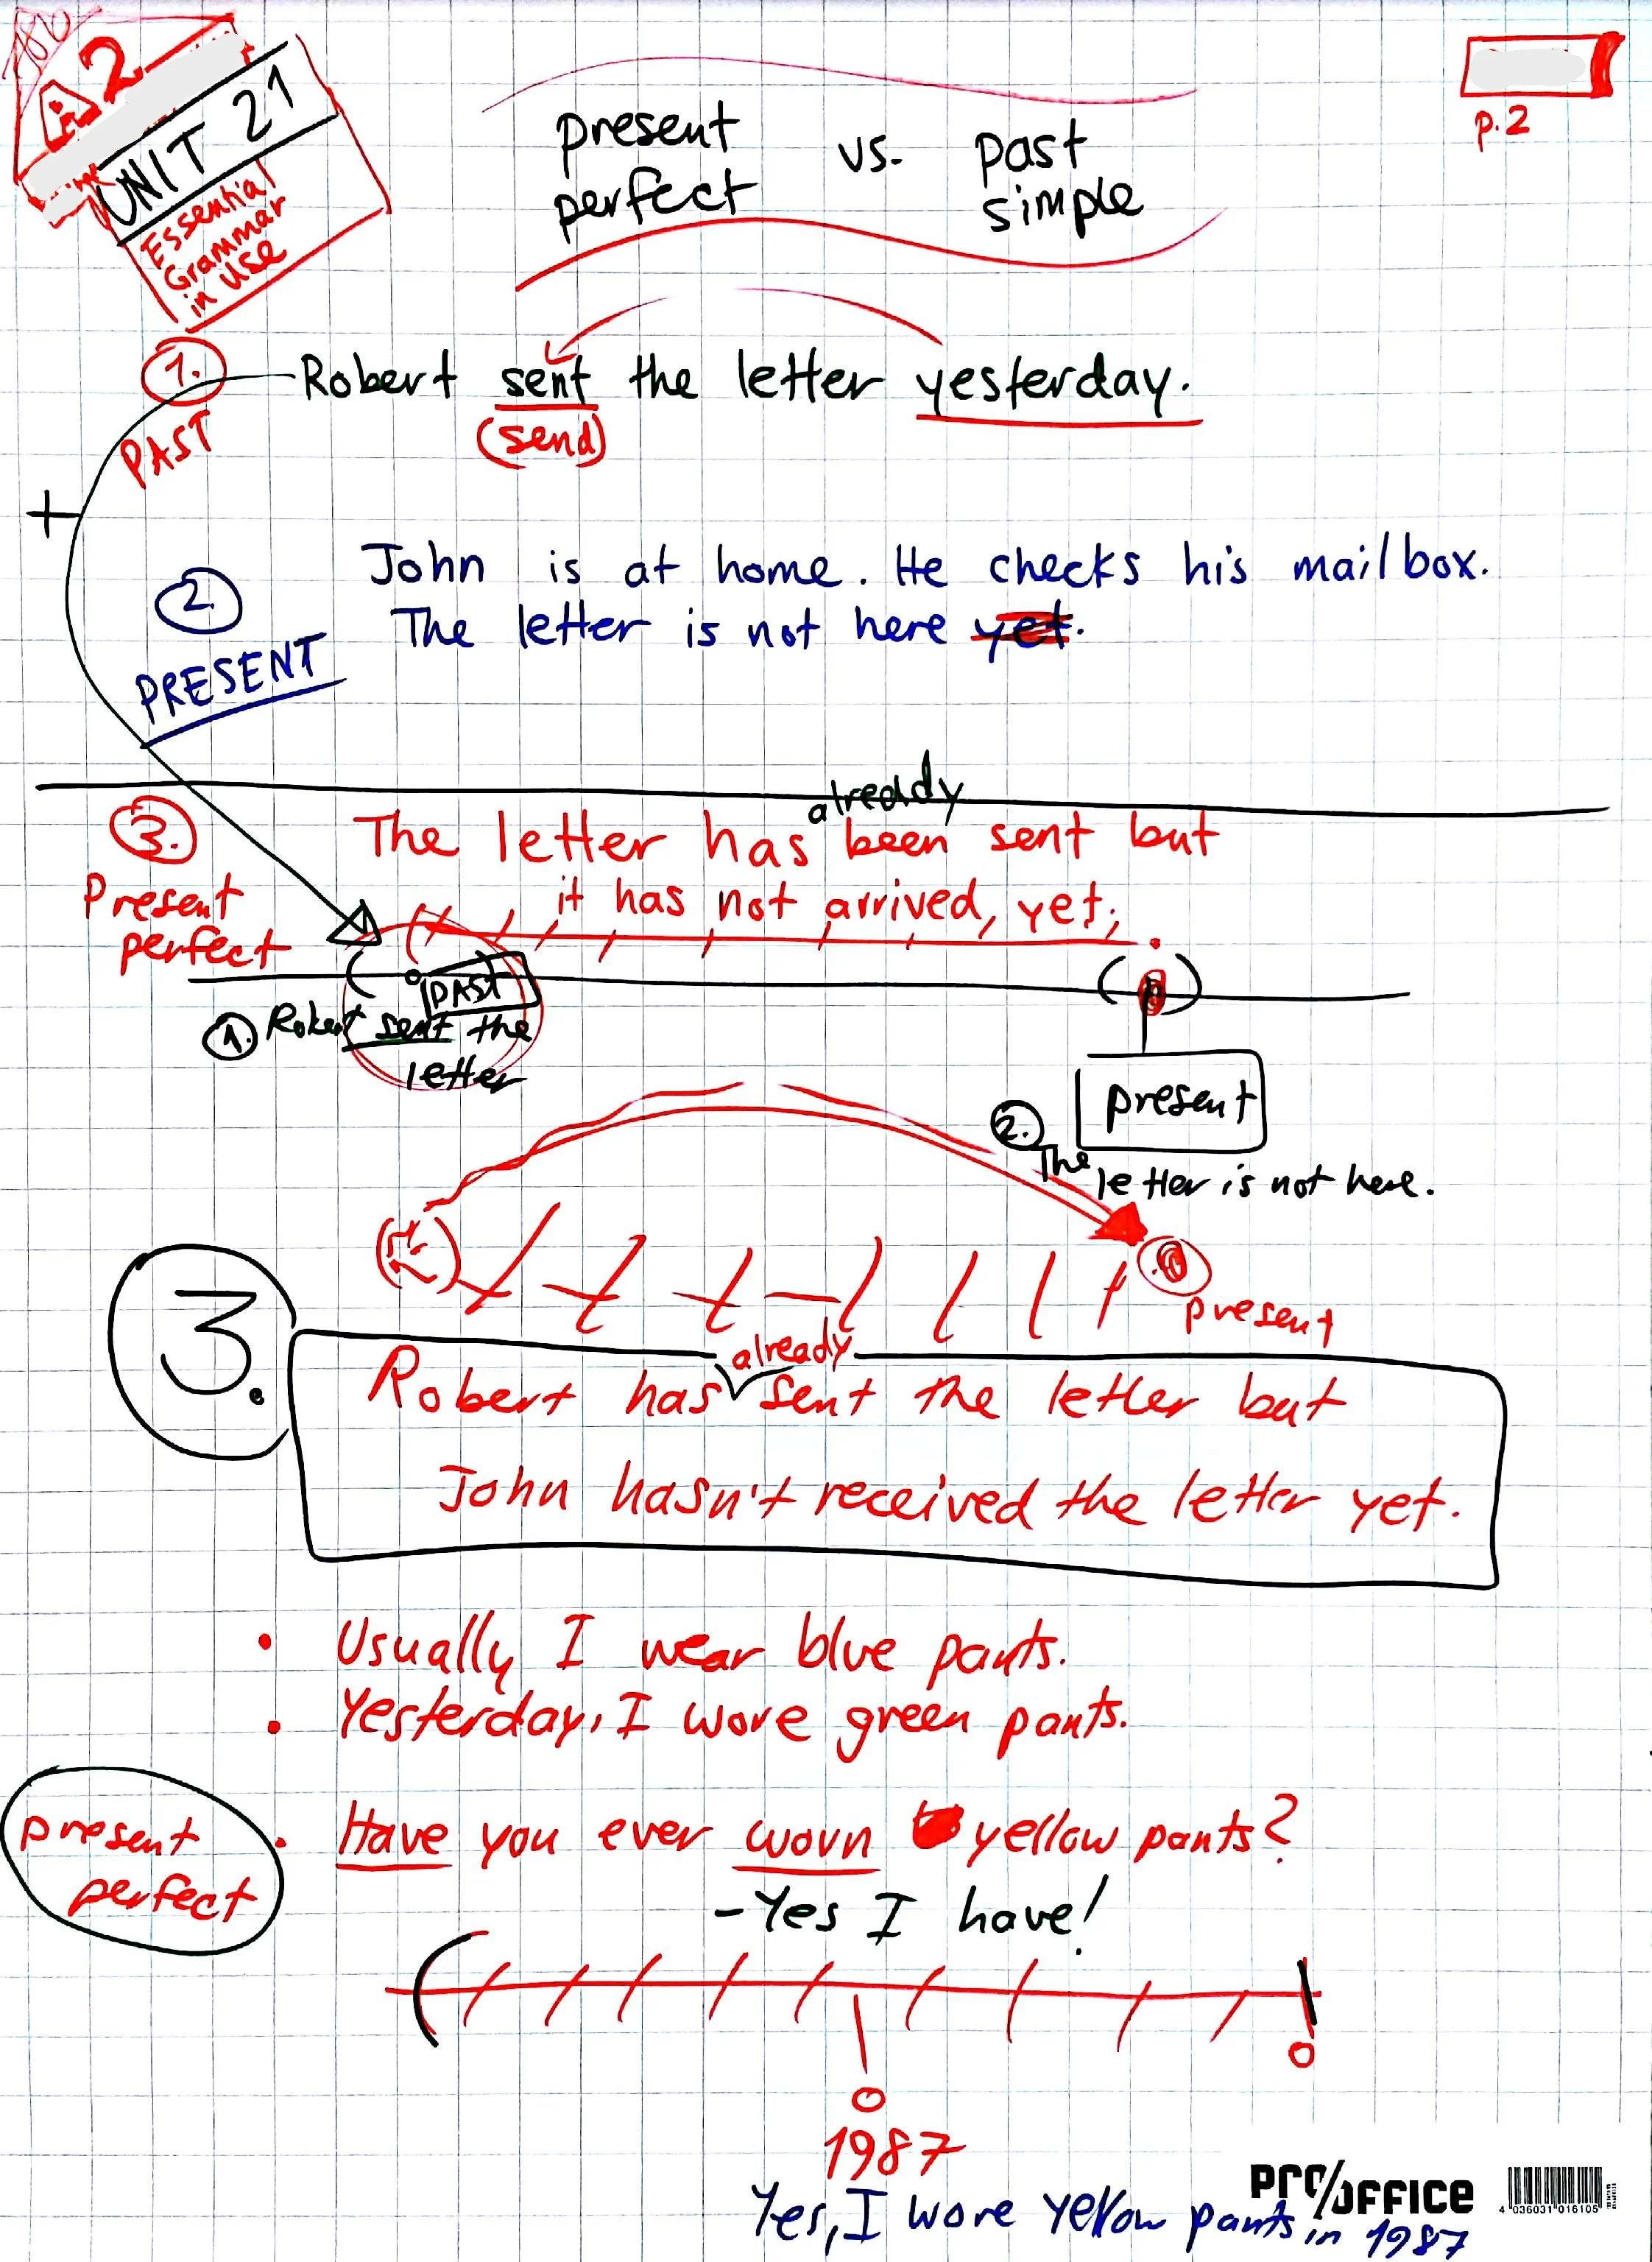 A2
UNIT 21
Essential
Grammar
in Use
p.2
present perfect vs. past simple
1. Robert sent the letter yesterday.
(send)
PAST
+
2. John is at home. He checks his mailbox.
The letter is not here yet.
PRESENT
already
3. The letter has been sent but
it has not arrived, yet.
Present
perfect
PAST
1. Robert sent the
letter
present
2. The
letter is not here.
present
already
3. Robert has sent the letter but
John hasn't received the letter yet.
• Usually I wear blue pants.
• Yesterday, I wore green pants.
present
perfect
• Have you ever worn yellow pants?
- Yes I have!
1987
PRO/OFFICE
4 036031 016105
Yes, I wore yellow pants in 1987